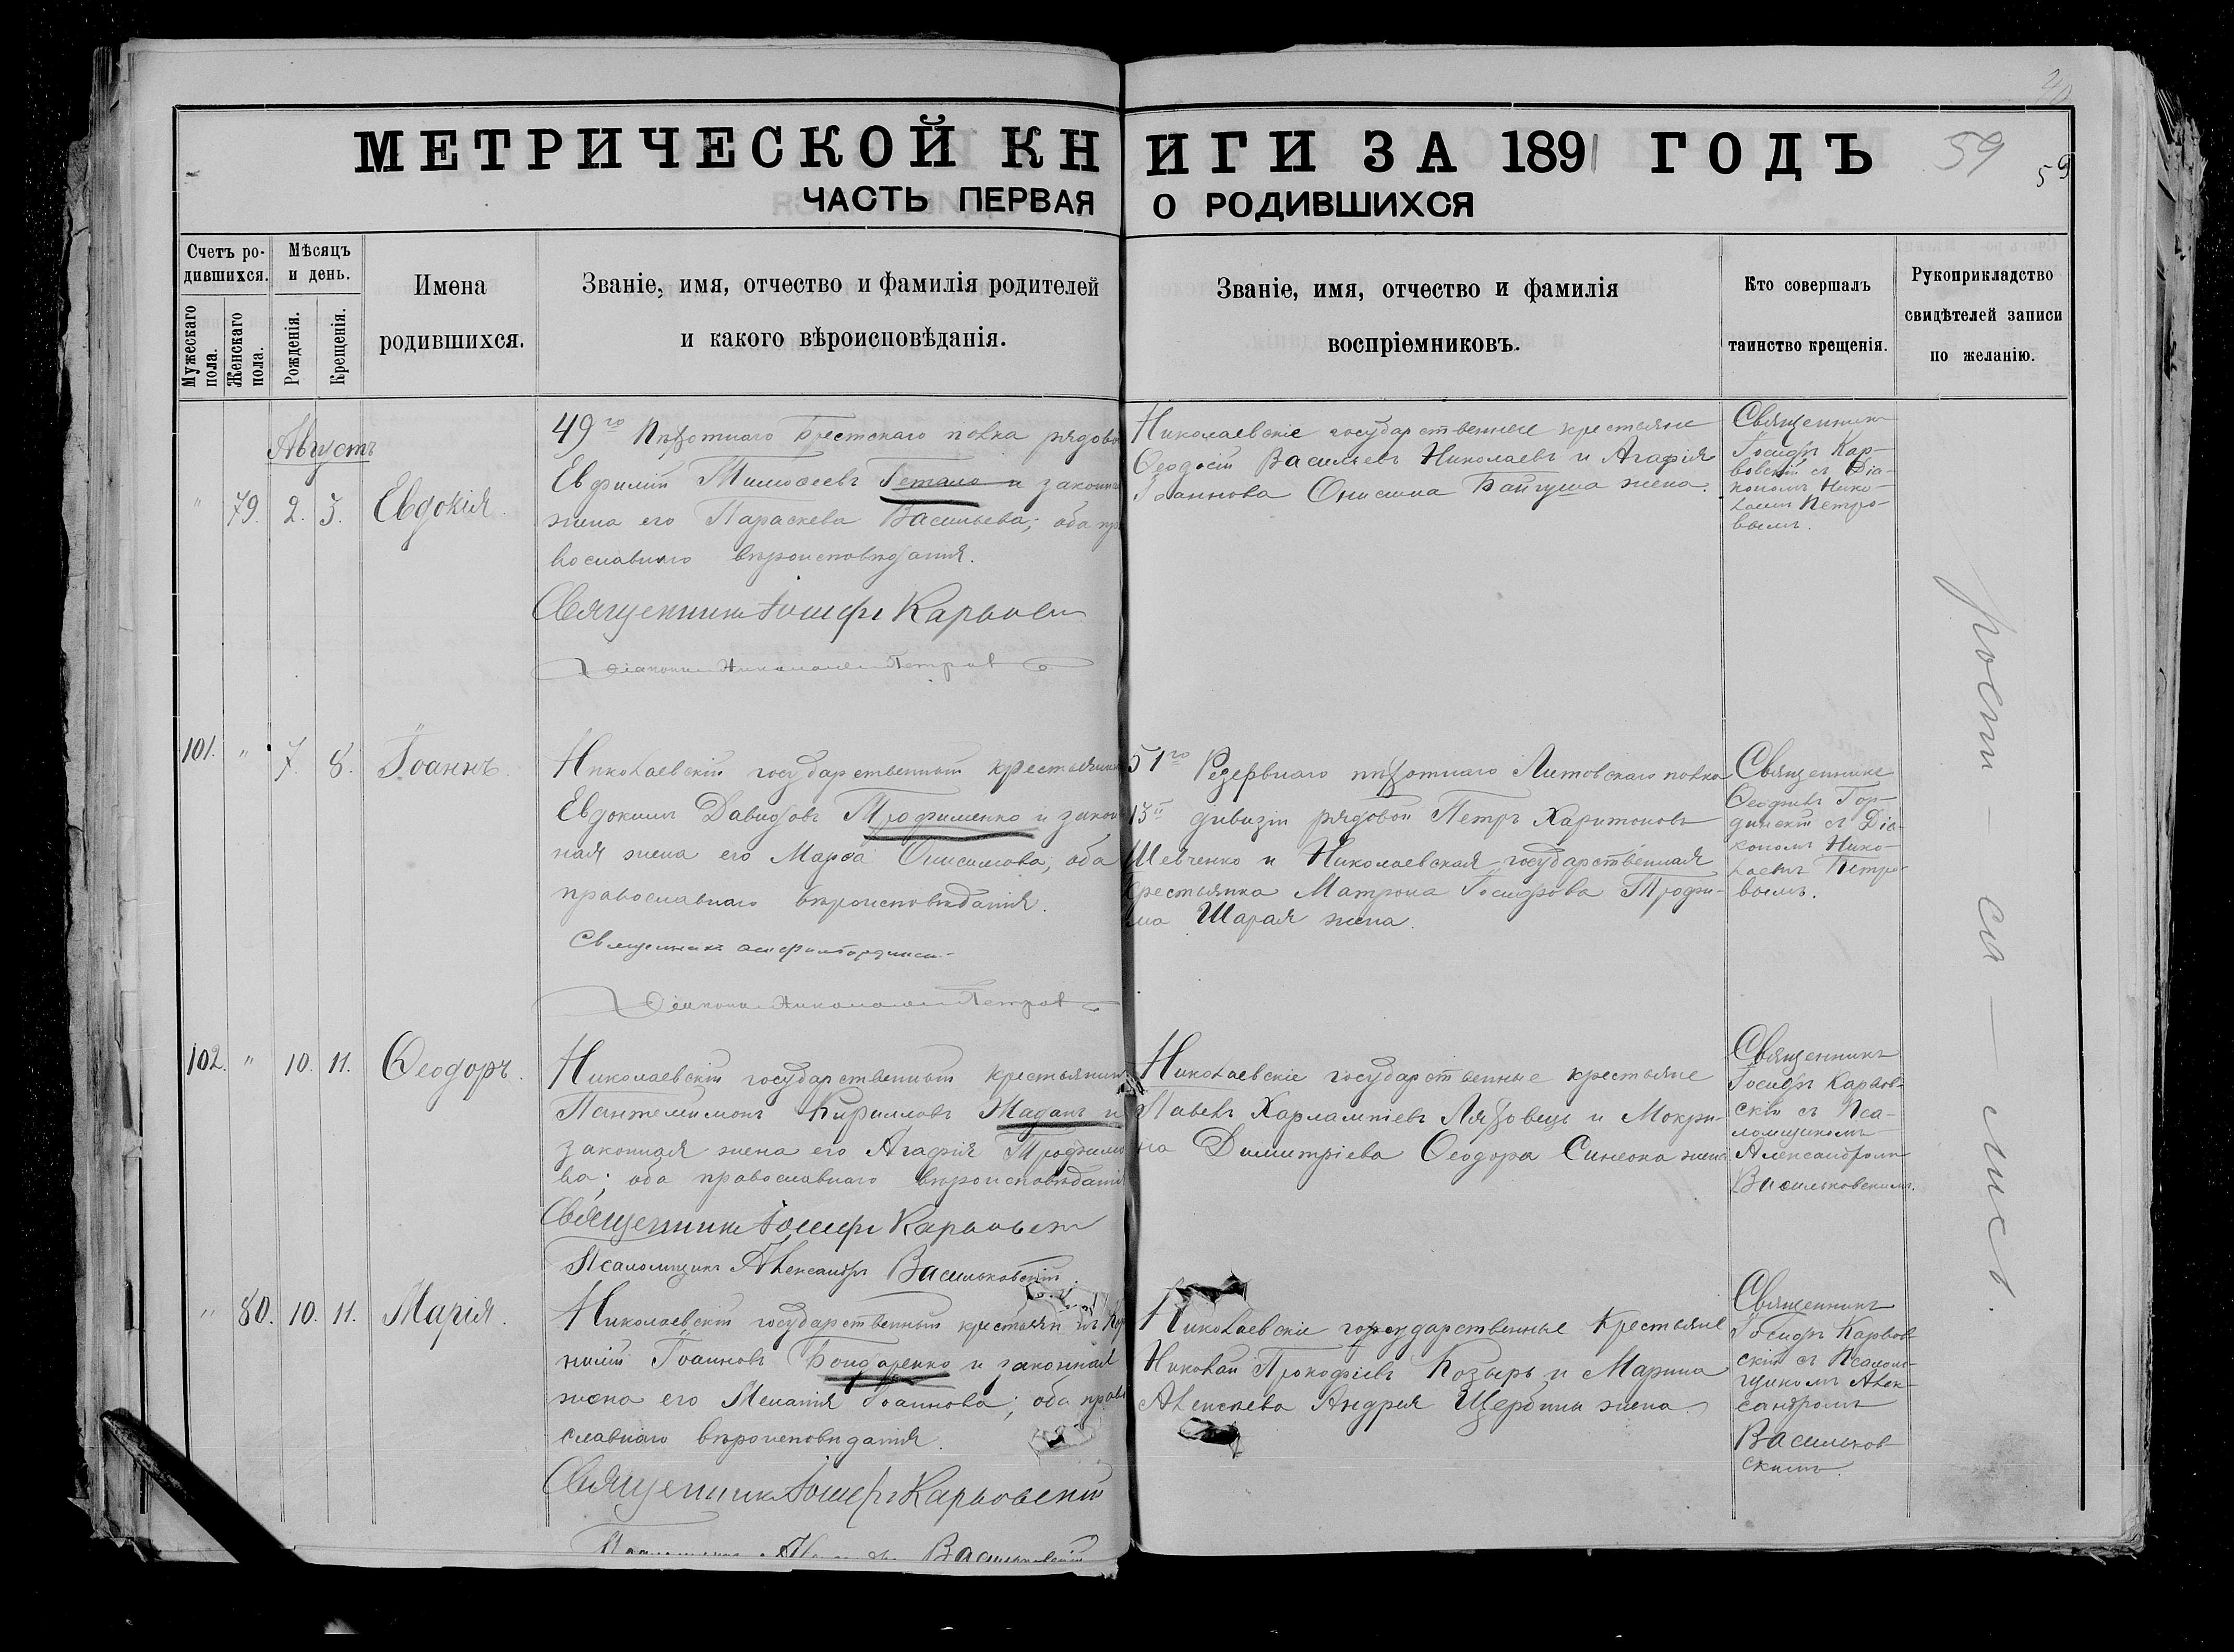 МЕТРИЧЕСКОЙ КНИГИ ЗА 1891 ГОДЪ
59
59
ЧАСТЬ ПЕРВАЯ О РОДИВШИХСЯ
Счетъ родившихся.
Мужескаго пола.
Женскаго пола.
Мѣсяцъ и день.
Рожденія.
Крещенія.
Имена
родившихся.
Званіе, имя, отчество и фамилія родителей
и какого вѣроисповѣданія.
Званіе, имя, отчество и фамилія
воспріемниковъ.
Кто совершалъ
таинство крещенія.
Рукоприкладство
свидѣтелей записи
по желанію.
Августъ
" 79. 2. 3. Евдокія.
49го Пѣхотнаго Брестскаго полка рядово
Евфимій Тимоѳеевъ и законн
жена его Параскева Васильева; оба пр
вославнаго вѣроисповѣданія.
Священникъ Іосифъ Карвов
Діаконъ Николай Петров
Николаевскіе государственные крестьяне
Ѳеодосій Васильевъ Николаевъ и Агафія
Іоаннова Онисима Байгуша жена.
Священникъ
Іосифъ Кар-
вовскій съ Діа-
кономъ Нико-
лаемъ Петро-
вымъ.
101. " 7. 8. Іоаннъ.
Николаевскій государственный крестьянин
Евдокимъ Давидовъ Трофименко и закон
ная жена его Марѳа Онисимова; оба
православнаго вѣроисповѣданія.
Священникъ
Діаконъ Николай Петров
51го Резервнаго пѣхотнаго Литовскаго полка
13й дивизіи рядовой Петръ Харитоновъ
Шевченко и Николаевская государственная
крестьянка Матрона Іосифова Трофи-
ма Шарая жена.
Священникъ
Гор-
динскій съ Діа-
кономъ Нико-
лаемъ Петро-
вымъ.
102. " 10. 11. Ѳеодоръ.
Николаевскій государственный крестьянин
Пантелеимонъ Кирилловъ Маданъ и
законная жена его Агафія Трофимо
ва; оба православнаго вѣроисповѣдані
Священникъ Іосифъ Карвовскій
Псаломщикъ Александръ Васильковскій.
Николаевскіе государственные крестьяне
Павелъ Харлампіевъ Ляховецъ и Мокри-
на Димитріева Ѳеодора Синеока жена
Священникъ
Іосифъ Карвов-
скій съ Пса-
ломщикомъ
Александромъ
Васильковскимъ.
" 80. 10. 11. Марія.
Николаевскій государственный крестьянинъ Кор
нилій Іоанновъ Бондаренко и законная
жена его Меланія Іоаннова; оба право
славнаго вѣроисповѣданія.
Священникъ Іосифъ Карвовскій
Псаломщикъ Александръ Васильковскій
Николаевскіе государственные крестьяне
Николай Прокофіевъ Козырь и Марина
Алексѣева Андрея Щербины жена.
Священникъ
Іосифъ Карвов-
скій съ Псалом-
щикомъ Алек-
сандромъ
Васильков-
скимъ.